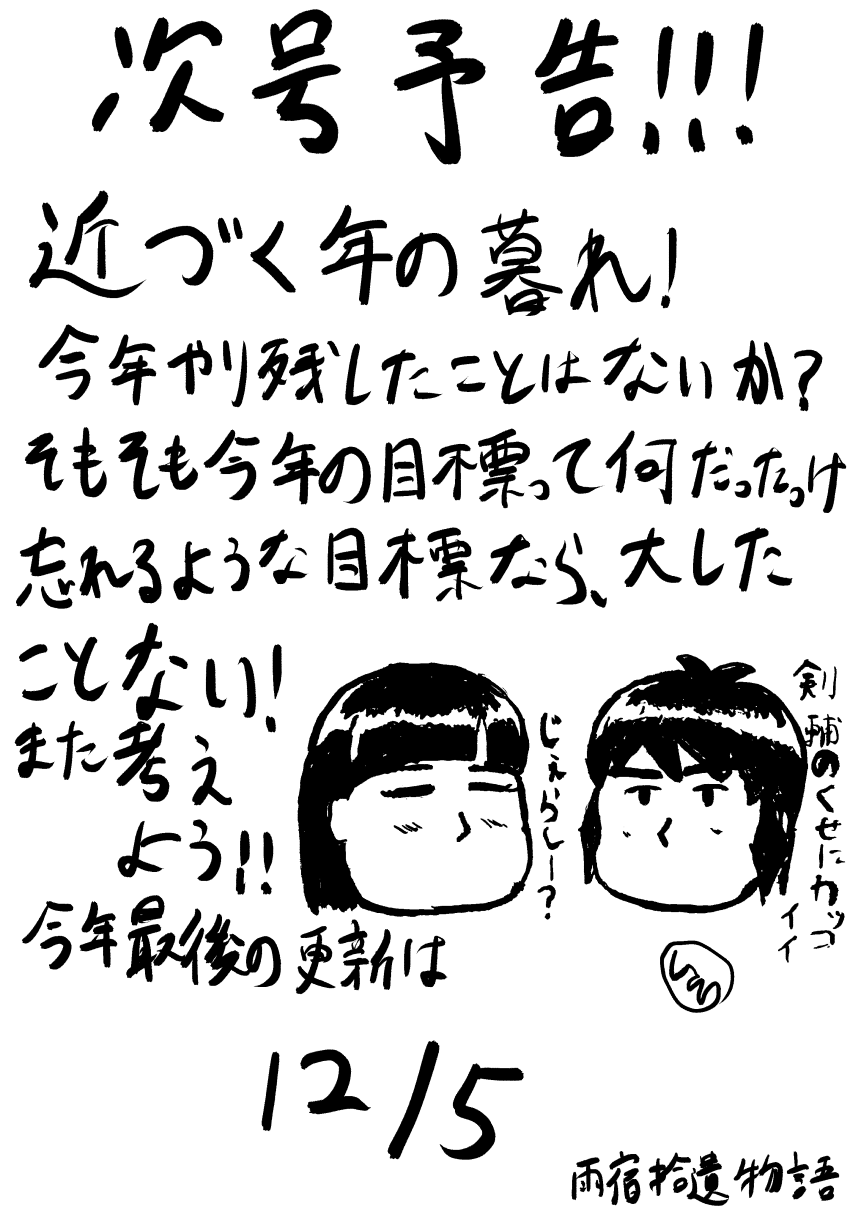 次号予告!!!
近づく年の暮れ!
今年やり残したことはないか?
そもそも今年の目標って何だったっけ
忘れるような目標なら、大した
ことない!
また考え
よう!!
じぇらしー?
剣輔のくせにカッコ
イイ
今年最後の更新は
12/5
雨宿拾遺物語